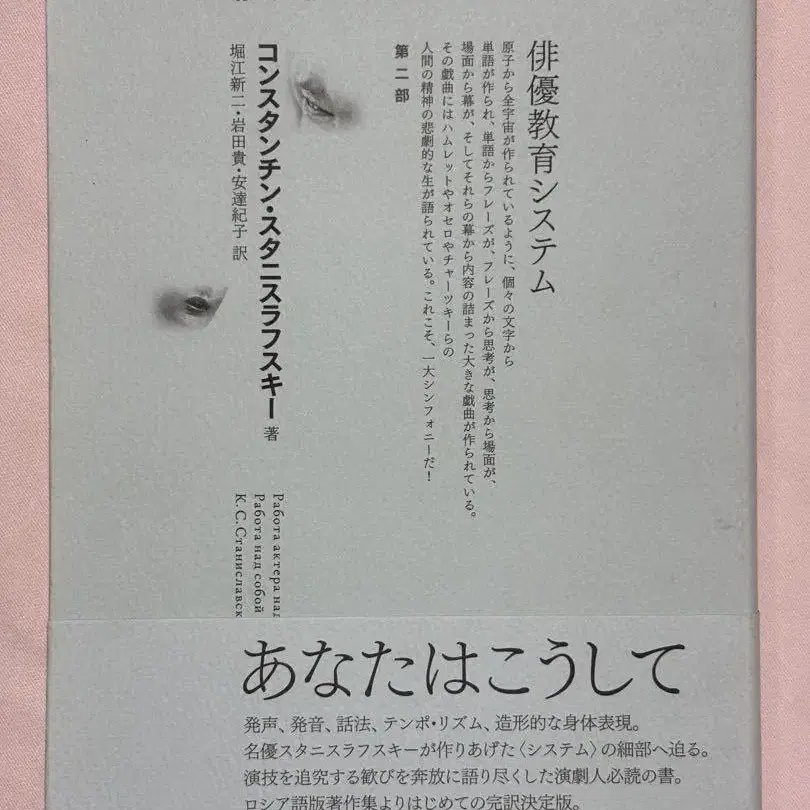 俳優教育システム
原子から全宇宙が作られているように、個々の文字から
単語が作られ、単語からフレーズが、フレーズから思考が、思考から場面が、
場面から幕が、そしてそれらの幕から内容の詰まった大きな戯曲が作られている。
その戯曲にはハムレットやオセロやチャーツキーらの
人間の精神の悲劇的な生が語られている。これこそ、一大シンフォニーだ！
第二部
コンスタンチン・スタニスラフスキー 著
堀江新二・岩田貴・安達紀子 訳
Работа актера над
Работа над собой
К. С. Станиславск
あなたはこうして
発声、発音、話法、テンポ・リズム、造形的な身体表現。
名優スタニスラフスキーが作りあげた〈システム〉の細部へ迫る。
演技を追究する歓びを奔放に語り尽くした演劇人必読の書。
ロシア語版著作集よりはじめての完訳決定版。